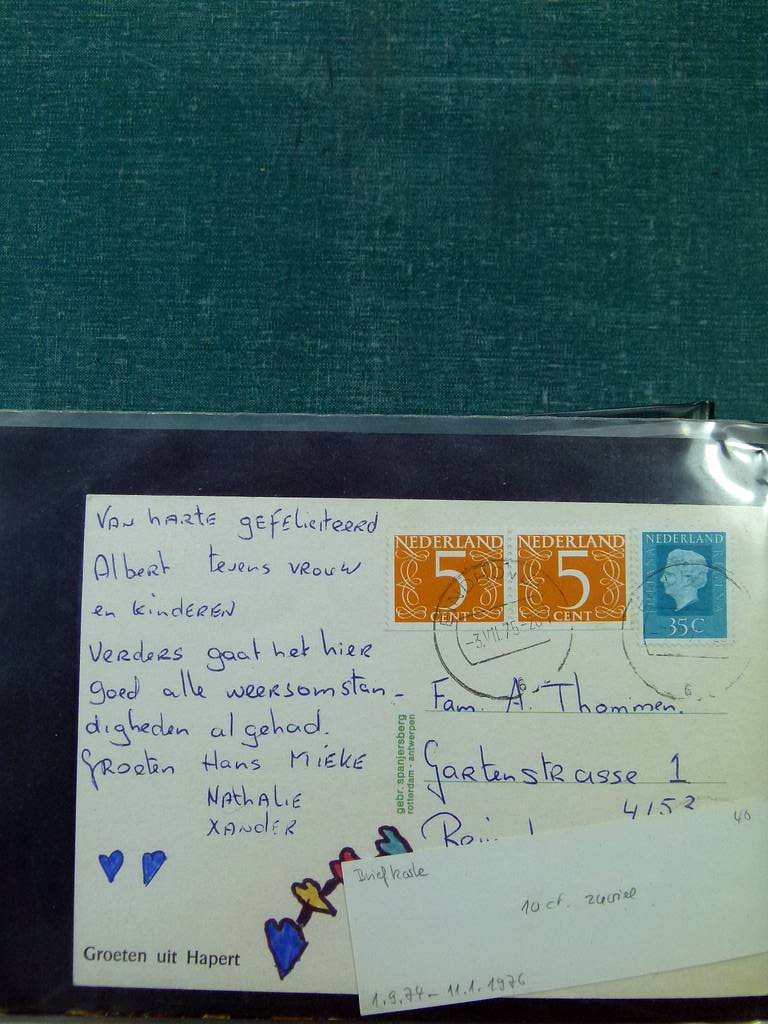 Van harte gefeliciteerd
Albert tevens vrouw
en kinderen
Verders gaat het hier
goed alle weersomstan-
digheden al gehad.
Groeten Hans Mieke
Nathalie
Xander
Groeten uit Hapert
gebr. spanjersberg
rotterdam - antwerpen
NEDERLAND
5
CENT
NEDERLAND
5
CENT
NEDERLAND
35 C
-3.VII.75
6
6
Fam. A. Thommen.
Gartenstrasse 1
4152
40
Briefkarte
10 ct. zuviel
1.9.74 - 11.1.1976